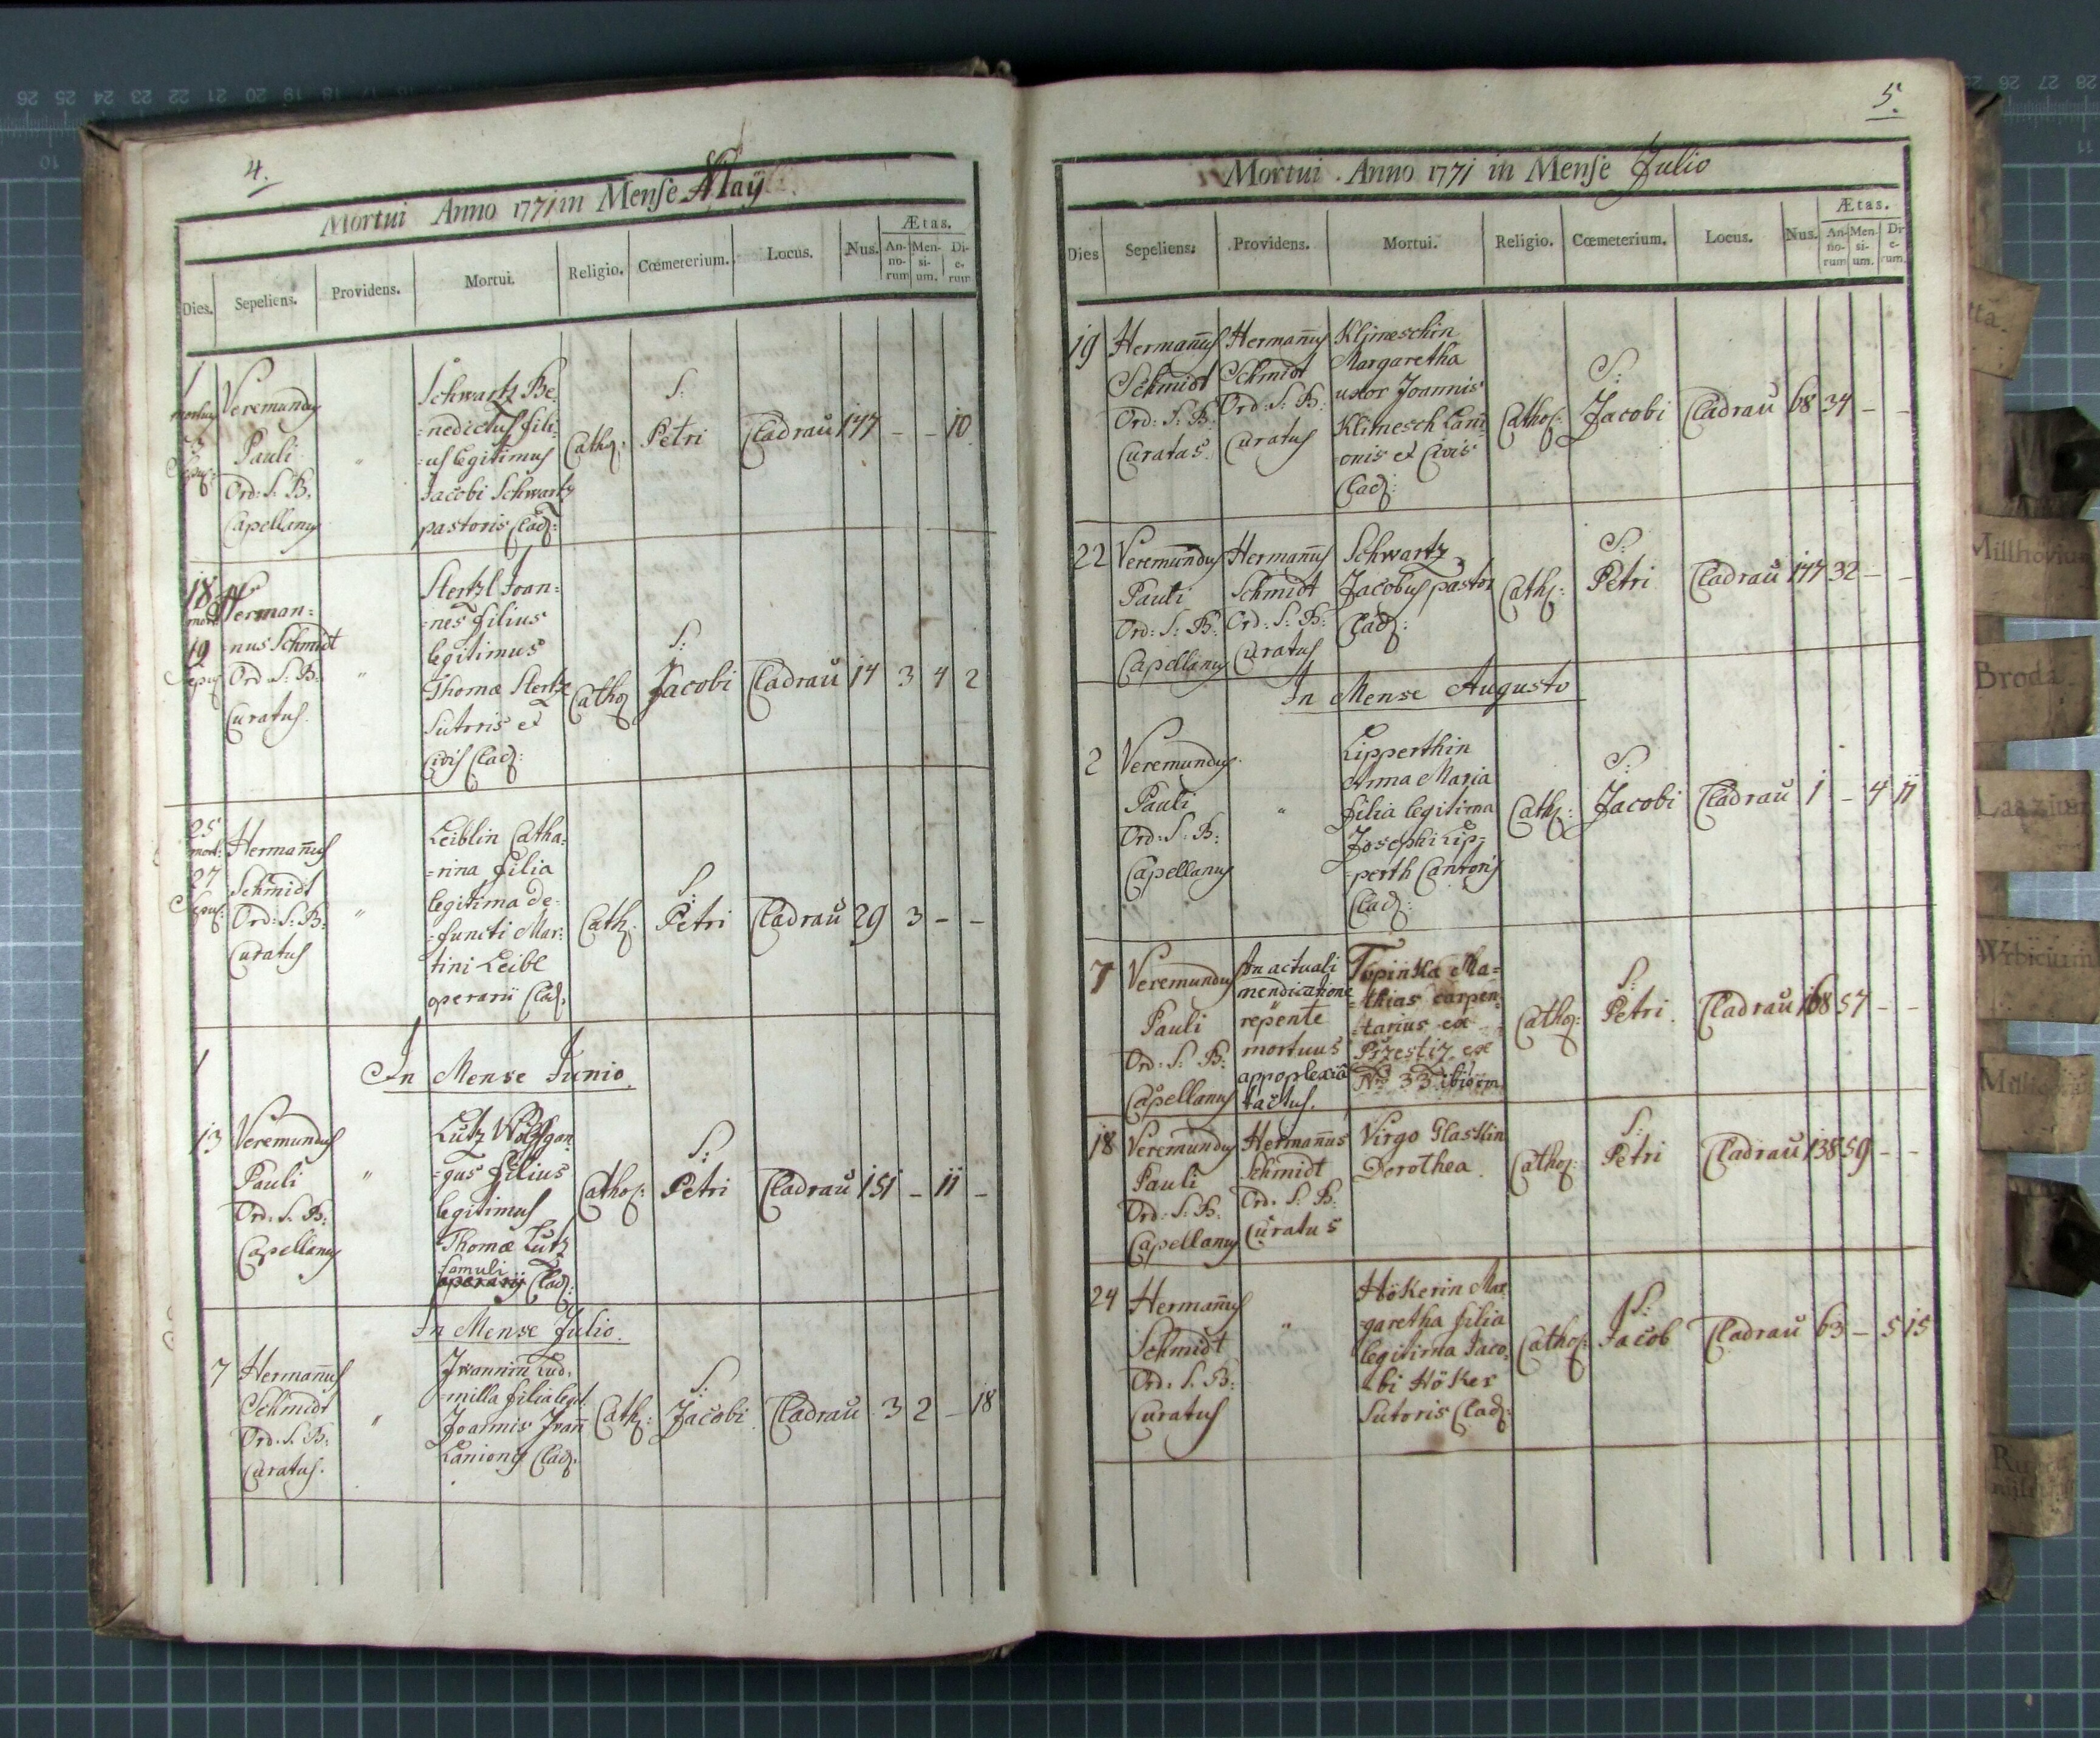 4.
Mortui Anno 1771 in Mense Maÿ
Dies. Sepeliens. Providens. Mortui. Religio. Cœmeterium. Locus. Nus. Ætas. An-no-rum Men-si-um. Di-e-rum
1 Veremundus Pauli Ord: S: B. Capellanus
"
Schwartz Be-
=nedictus fili-
=us legitimus
Jacobi Schwartz
pastoris Clad:
Cath: S: Petri Cladrau 147 - - 10
18 mort: 19 Sepul: Herman=
=nus Schmidt
Ord S: B:
Curatus.
"
Stertzl Joan=
=nes filius
legitimus
Thomæ Stertzl
Sutoris et
Civis Clad:
Cathol S: Jacobi Cladrau 14 3 4 2
25 mort: 27 Sepul: Hermañus
Schmidt
Ord: S: B:
Curatus
"
Leiblin Catha=
=rina filia
legitima de-
=functi Mar=
tini Leibl
operarii Clad.
Cath: S: Petri Cladrau 29 3 - -
In Mense Junio.
13 Veremundus
Pauli
Ord: S: B:
Capellanus
"
Lutz Wolfgan
=gus filius
legitimus
Thomæ Lutz
famuli
operarÿ Clad:
Cathol: S: Petri Cladrau 151 - 11 -
In Mense Julio.
7 Hermañus
Schmidt
Ord: S: B:
Curatus.
"
Jwannin Lud=
=milla filia legit.
Joannis Jvañ
Lanionis Clad.
Cath: S: Jacobi Cladrau 3 2 - 18
5.
Mortui Anno 1771 in Mense Julio
Dies Sepeliens. Providens. Mortui. Religio. Cœmeterium. Locus. Nus. Ætas. An-no-rum Men-si-um. Di-e-rum.
19 Hermañus
Schmidt
Ord: S: B:
Curatus.
Hermañus
Schmidt
Ord: S: B:
Curatus
Klimeschin
Margaretha
uxor Joannis
Klimesch Lani
=onis et Civis
Clad:
Cathol: S: Jacobi Cladrau 68 34 - -
22 Veremundus
Pauli
Ord: S: B:
Capellanus
Hermañus
Schmidt
Ord: S: B:
Curatus
Schwartz
Jacobus pastor
Clad:
Cath: S: Petri Cladrau 147 32 - -
In Mense Augusto
2 Veremundus
Pauli
Ord: S: B:
Capellanus
"
Lipperthin
Anna Maria
filia legitima
Josephi Lip=
=perth Cantoris
Clad:
Cath: S: Jacobi Cladrau 1 - 4 11
7 Veremundus
Pauli
Ord: S: B:
Capellanus
In actuali
mendicatione
repente
mortuus
appoplexiâ
tactus.
Topinka Ma=
=thias carpen=
=tarius ex
Przestiz ex
Nro 33
Cathol: S: Petri. Cladrau 168 57 - -
18 Veremundus
Pauli
Ord: S: B:
Capellanus
Hermañus
Schmidt
Ord: S: B:
Curatus
Virgo Glaslin
Dorothea.
Cathol: S: Petri Cladrau 138 59 - -
24 Hermañus
Schmidt
Ord: S: B:
Curatus
"
Hökerin Mar
=garetha filia
legitima Jaco=
=bi Höker
Sutoris Clad:
Cathol: S: Jacob Cladrau 63 - 5 15
Millhovium
Broda.
Wrbicium